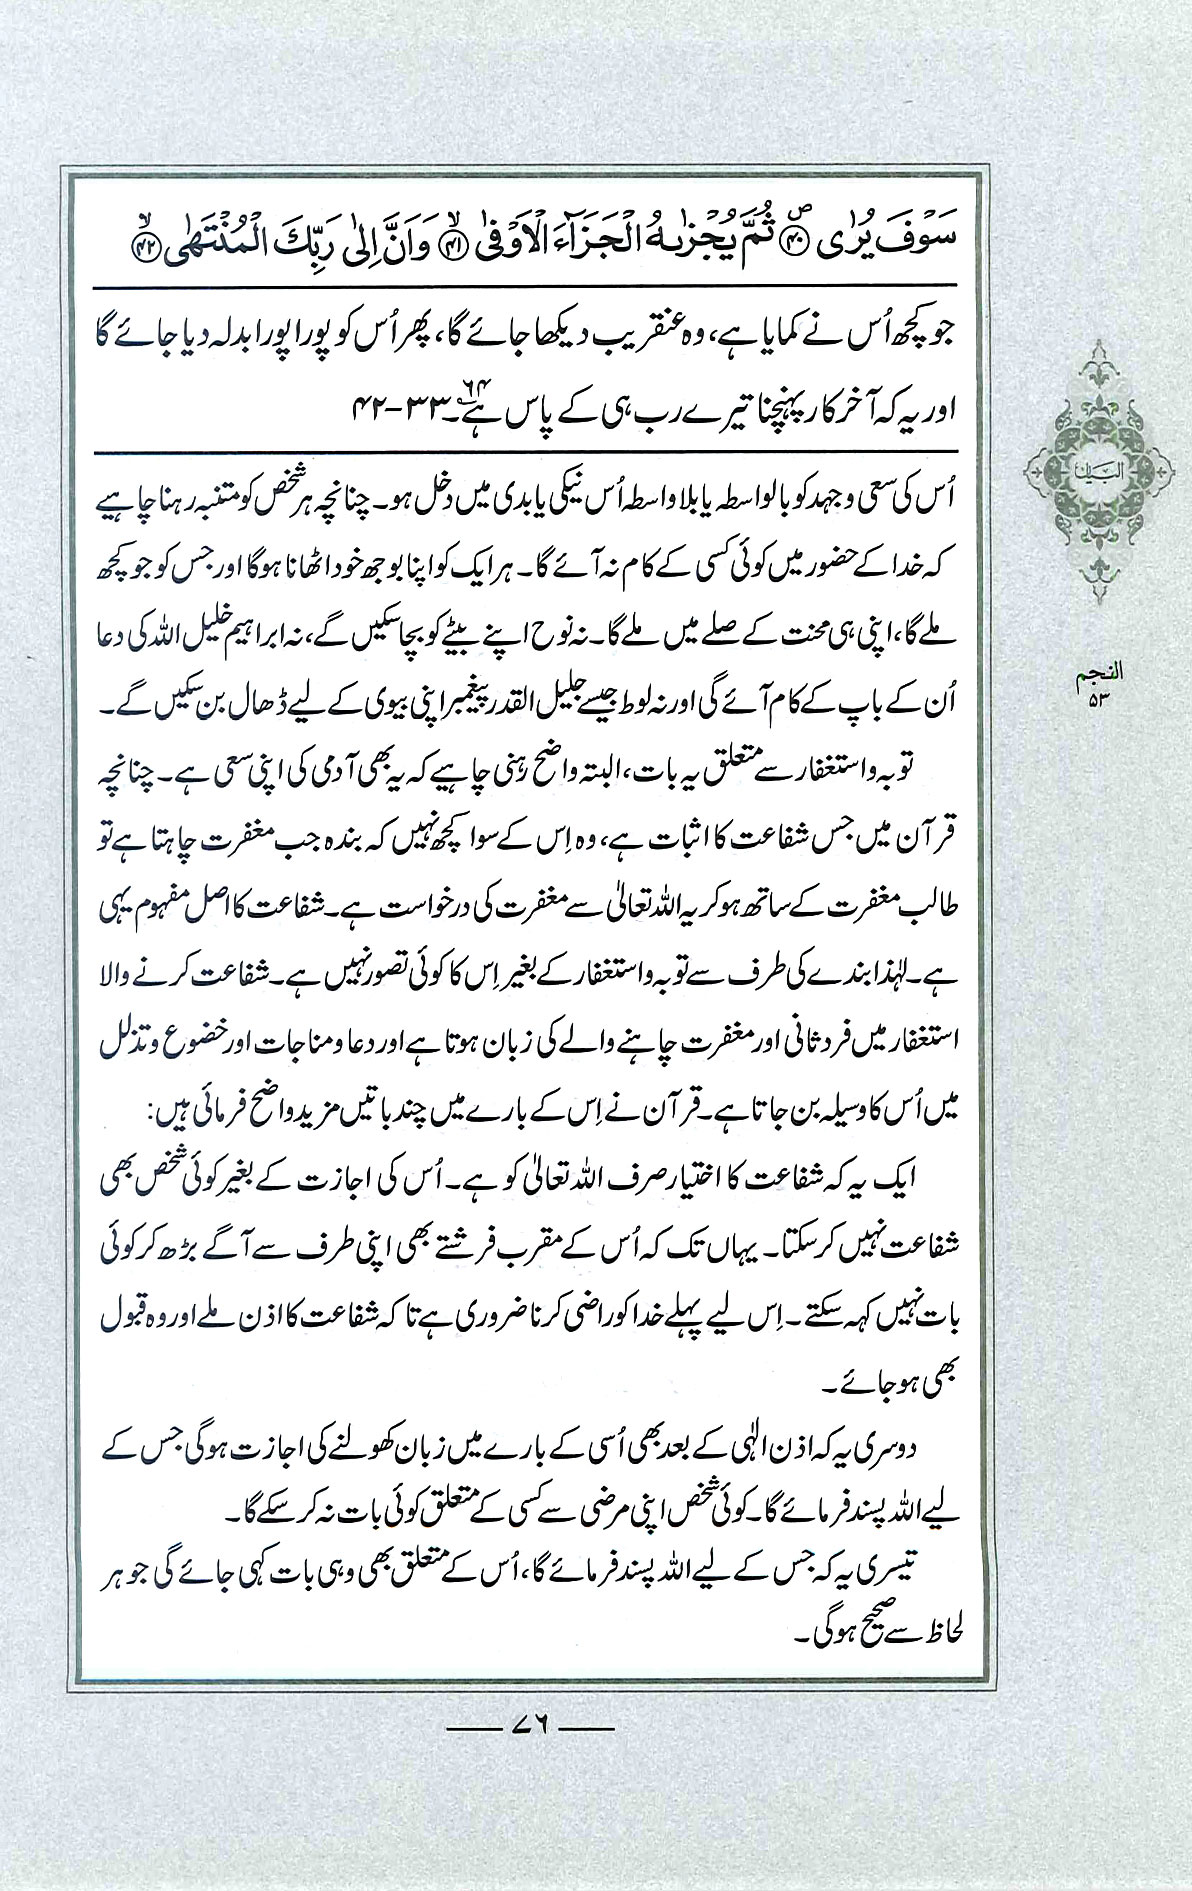 سَوْفَ يُرٰى ﴿۴۰﴾ ثُمَّ يُجْزٰىهُ الْجَزَآءَ الْاَوْفٰى ﴿۴۱﴾ وَاَنَّ اِلٰى رَبِّكَ الْمُنْتَهٰى ﴿۴۲﴾
جو کچھ اُس نے کمایا ہے، وہ عنقریب دیکھا جائے گا، پھر اُس کو پورا پورا بدلہ دیا جائے گا
اور یہ کہ آخرکار پہنچنا تیرے رب ہی کے پاس ہے۶۴۔ ۳۳-۴۲
اُس کی سعی و جہد کو بالواسطہ یا بلاواسطہ اُس نیکی یا بدی میں دخل ہو۔ چنانچہ ہر شخص کو متنبہ رہنا چاہیے
کہ خدا کے حضور میں کوئی کسی کے کام نہ آئے گا۔ ہر ایک کو اپنا بوجھ خود اٹھانا ہوگا اور جس کو جو کچھ
ملے گا، اپنی ہی محنت کے صلے میں ملے گا۔ نہ نوح اپنے بیٹے کو بچا سکیں گے، نہ ابراہیم خلیل اللہ کی دعا
اُن کے باپ کے کام آئے گی اور نہ لوط جیسے جلیل القدر پیغمبر اپنی بیوی کے لیے ڈھال بن سکیں گے۔
توبہ و استغفار سے متعلق یہ بات، البتہ واضح رہنی چاہیے کہ یہ بھی آدمی کی اپنی سعی ہے۔ چنانچہ
قرآن میں جس شفاعت کا اثبات ہے، وہ اِس کے سوا کچھ نہیں کہ بندہ جب مغفرت چاہتا ہے تو
طالب مغفرت کے ساتھ ہو کر یہ اللہ تعالیٰ سے مغفرت کی درخواست ہے۔ شفاعت کا اصل مفہوم یہی
ہے۔ لہٰذا بندے کی طرف سے توبہ و استغفار کے بغیر اِس کا کوئی تصور نہیں ہے۔ شفاعت کرنے والا
استغفار میں فرد ثانی اور مغفرت چاہنے والے کی زبان ہوتا ہے اور دعا و مناجات اور خضوع و تذلل
میں اُس کا وسیلہ بن جاتا ہے۔ قرآن نے اِس کے بارے میں چند باتیں مزید واضح فرمائی ہیں:
ایک یہ کہ شفاعت کا اختیار صرف اللہ تعالیٰ کو ہے۔ اُس کی اجازت کے بغیر کوئی شخص بھی
شفاعت نہیں کر سکتا۔ یہاں تک کہ اُس کے مقرب فرشتے بھی اپنی طرف سے آگے بڑھ کر کوئی
بات نہیں کہہ سکتے۔ اِس لیے پہلے خدا کو راضی کرنا ضروری ہے تاکہ شفاعت کا اذن ملے اور وہ قبول
بھی ہو جائے۔
دوسری یہ کہ اذن الٰہی کے بعد بھی اُسی کے بارے میں زبان کھولنے کی اجازت ہوگی جس کے
لیے اللہ پسند فرمائے گا۔ کوئی شخص اپنی مرضی سے کسی کے متعلق کوئی بات نہ کر سکے گا۔
تیسری یہ کہ جس کے لیے اللہ پسند فرمائے گا، اُس کے متعلق بھی وہی بات کہی جائے گی جو ہر
لحاظ سے صحیح ہوگی۔
البیان
النجم
۵۳
۷۶